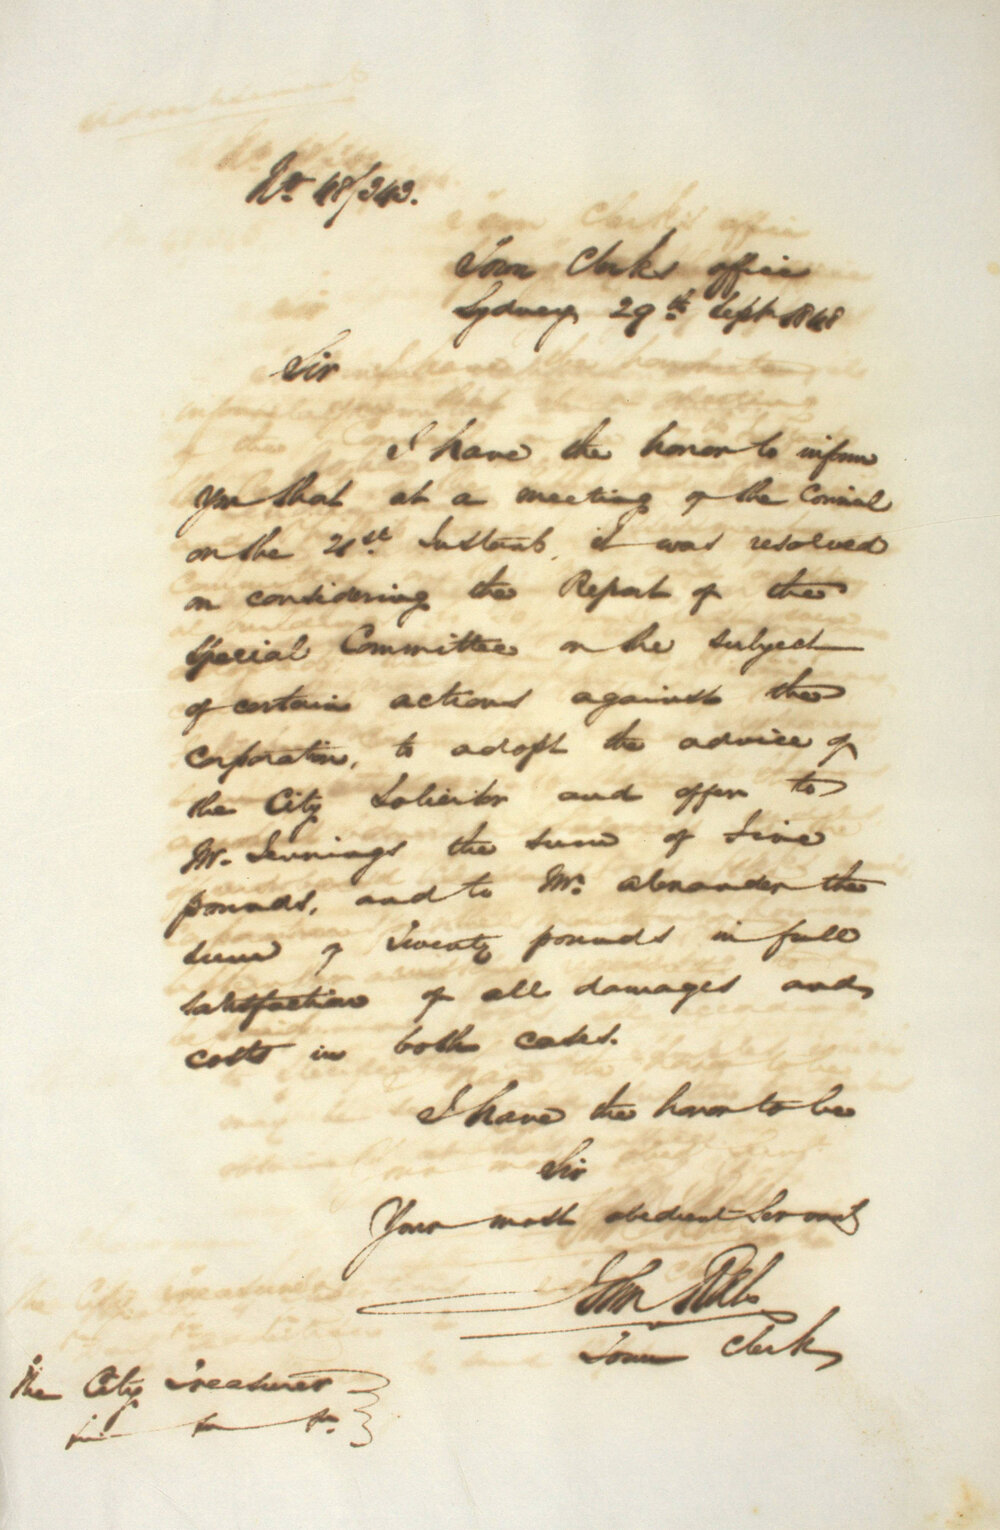 No. 48/343.
Town Clerks office
Sydney 29th Sept 1848
Sir
I have the honor to inform
you that at a meeting of the Council
on the 21st Instant, it was resolved
on considering the Report of the
Special Committee on the subject
of certain actions against the
Corporation, to adopt the advice of
the City Solicitor and offer to
Mr. Jennings the sum of Five
pounds, and to Mr. Alexander the
sum of Twenty pounds in full
satisfaction of all damages and
costs in both cases.
I have the honor to be
Sir
Your most obedient Servant
John Rae
Town Clerk
The City Treasurer